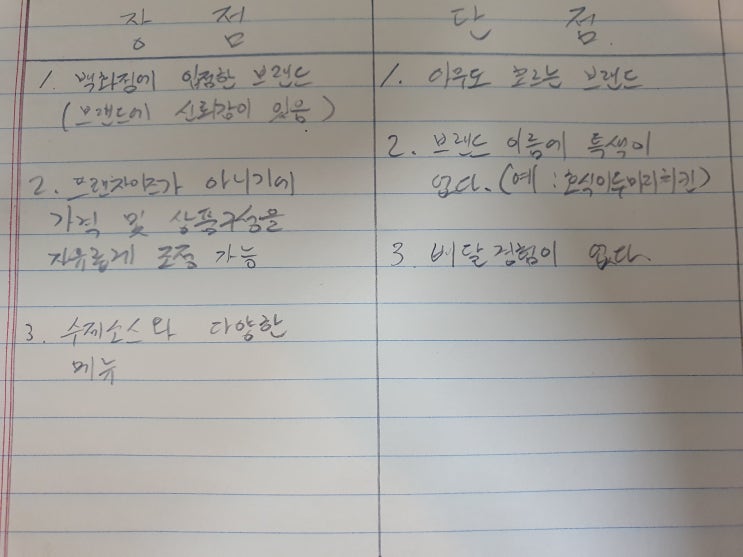 장 점
1. 백화점에 입점한 브랜드
(브랜드에 신뢰감이 있음)
2. 프랜차이즈가 아니기에
가격 및 상품구성을
자유롭게 조정 가능
3. 수제소스와 다양한
메뉴
단 점
1. 아무도 모르는 브랜드
2. 브랜드 이름에 특색이
없다. (예 : 호식이두마리치킨)
3. 배달경험이 없다.